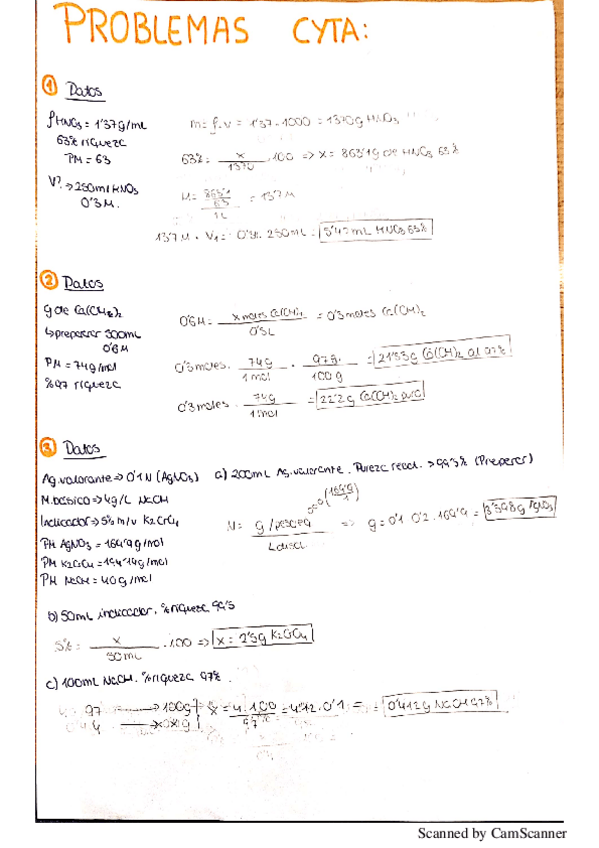 PROBLEMAS CYTA:
① Datos
ρHNO₃ = 1'37g/mL
63% riqueza
PM = 63
V? → 250ml HNO₃
0'3M.
m = ρ·v = 1'37·1000 = 1370g HNO₃
63% = x/1370 · 100 => x = 863'1g de HNO₃ 63%
M = (863'1/63)/1L = 13'7M
13'7M · V₁ = 0'3M. 250mL = 5'47mL HNO₃ 63%
② Datos
g de Ca(OH)₂
↳ preparar 500mL
0'6M
PM = 74g/mol
%97 riqueza
0'6M = x moles Ca(OH)₂/0'5L = 0'3 moles Ca(OH)₂
0'3 moles · 74g/1mol · 97g/100g = 21'53g Ca(OH)₂ al 97%
0'3 moles · 74g/1mol = 22'2g Ca(OH)₂ puro
③ Datos
Ag. valorante => 0'1N (AgNO₃)
M. básico => 4g/L NaOH
Indicador => 5% m/v K₂CrO₄
PM AgNO₃ = 169'9g/mol
PM K₂CrO₄ = 194'19g/mol
PM NaOH = 40g/mol
a) 200mL Ag. valorante. Pureza react. > 99'5% (Preparar)
N = g/pesoeq / L disol => g = 0'1 0'2 . 169'9 =
b) 50mL indicador, % riqueza 99'5
5% = x/50mL · 100 => x = 2'5g K₂CrO₄
c) 100mL NaOH. % riqueza 97%.
97 → 100g
4 → x g
x = 4·100/97 = 4'12 · 0'1 = 0'412g NaOH 97%
Scanned by CamScanner